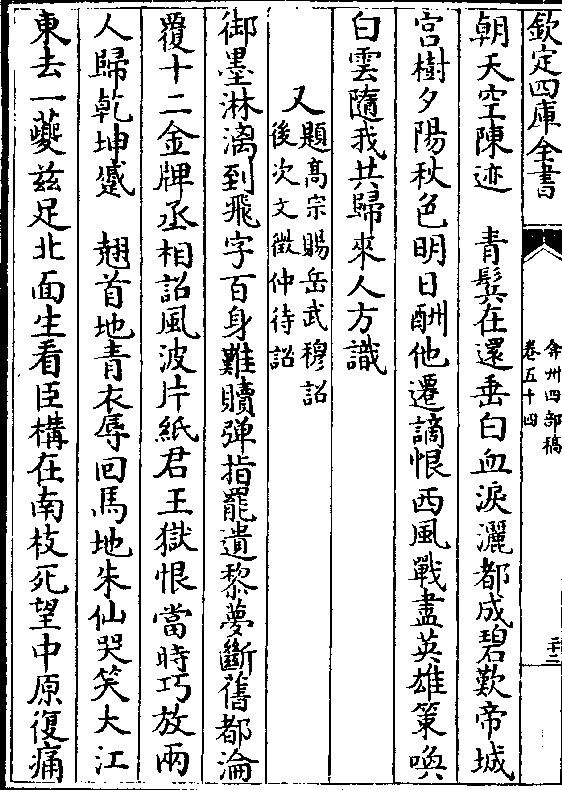 欽定四庫全書
弇州四部稿
卷五十四
二十二
朝天空陳迹　青鬂在還垂白血淚灑都成碧歎帝城
宫樹夕陽秋色明日酬他遷謫恨西風戰盡英雄策喚
白雲隨我共歸來人方識
又題髙宗賜岳武穆詔
後次文徴仲待詔
御墨淋漓到飛字百身難贖弹指罷遺黎夢斷舊都淪
覆十二金牌丞相詔風波片紙君王獄恨當時巧放兩
人歸乾坤蹙　翹首地青衣辱回馬地朱仙哭笑大江
東去一䕫兹足北面生看臣構在南枝死望中原復痛